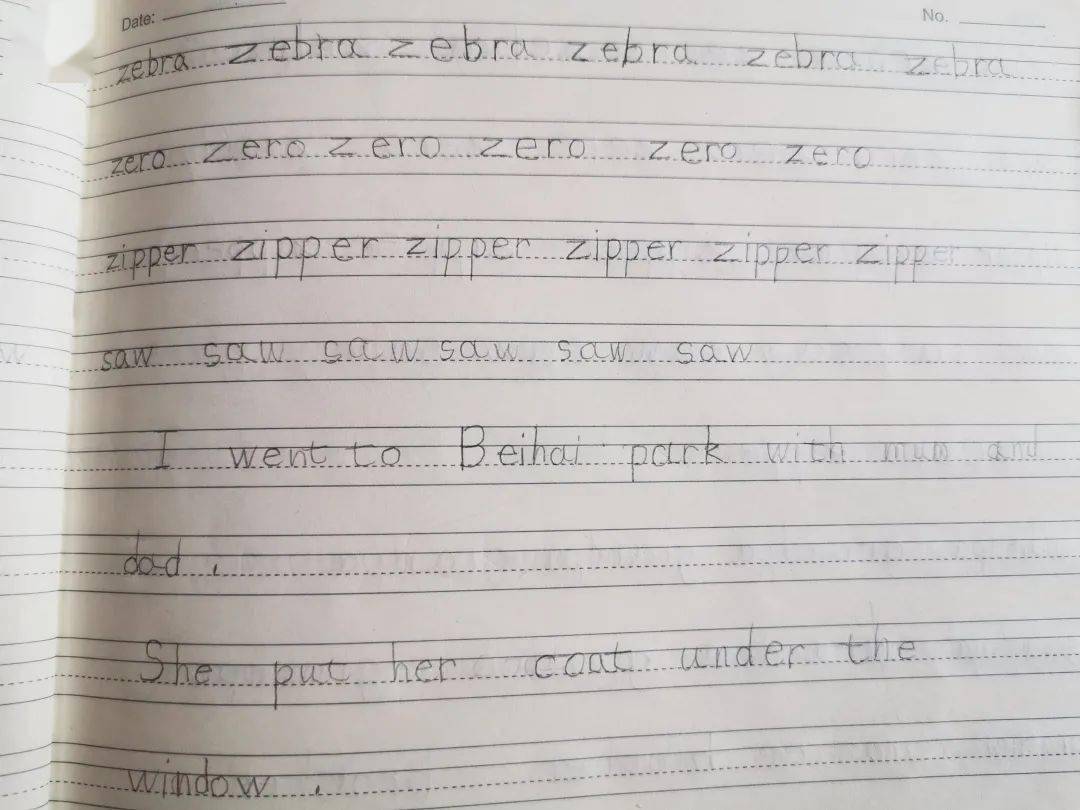 Date:
No.
zebra zebra zebra zebra zebra zebra
zero zero zero zero zero zero
zipper zipper zipper zipper zipper zipper
saw saw saw saw saw saw
I went to Beihai park with mum and
dad.
She put her coat under the
window.